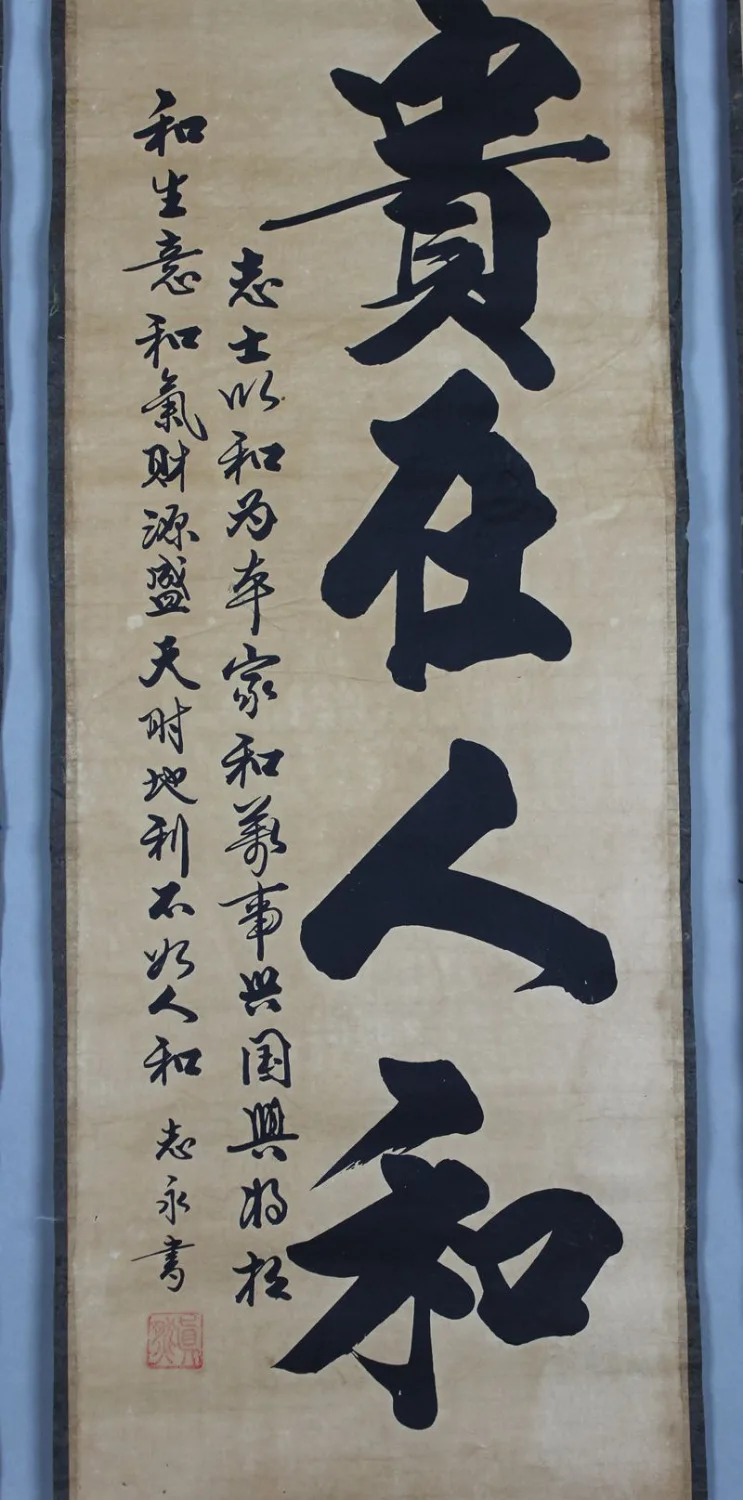 貴在人和
志士以和为本家和萬事兴国興将相
和生意和氣财源盛天时地利不如人和
志永書